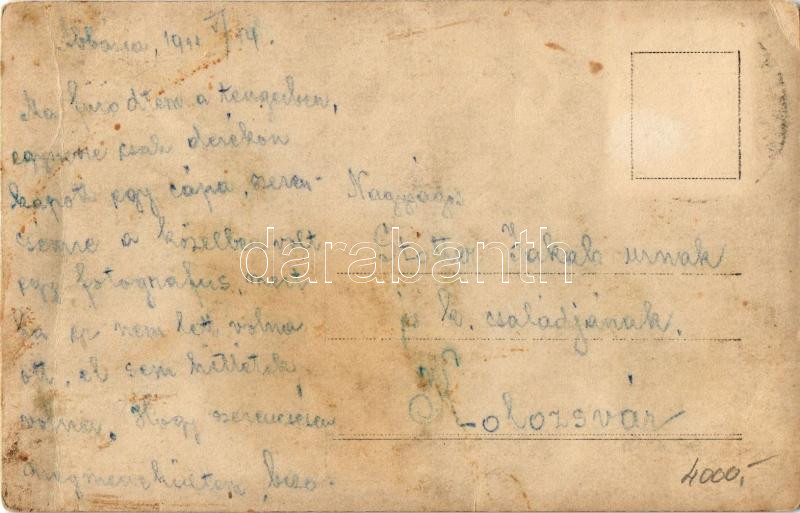 Abbázia, 1911 VI/14.
Ma fürödtem a tengerben,
egyszerre csak derékon
kapott egy cápa, szeren-
csémre a közelben volt
egy fotografus, mert
ha ez nem lett volna
ott, el sem hittétek
volna. Hogy szerencsésen
megmenekültem, bizo-
Nagyságos
Jakab urnak
és b. családjának.
Kolozsvár
4000,-
darabanth